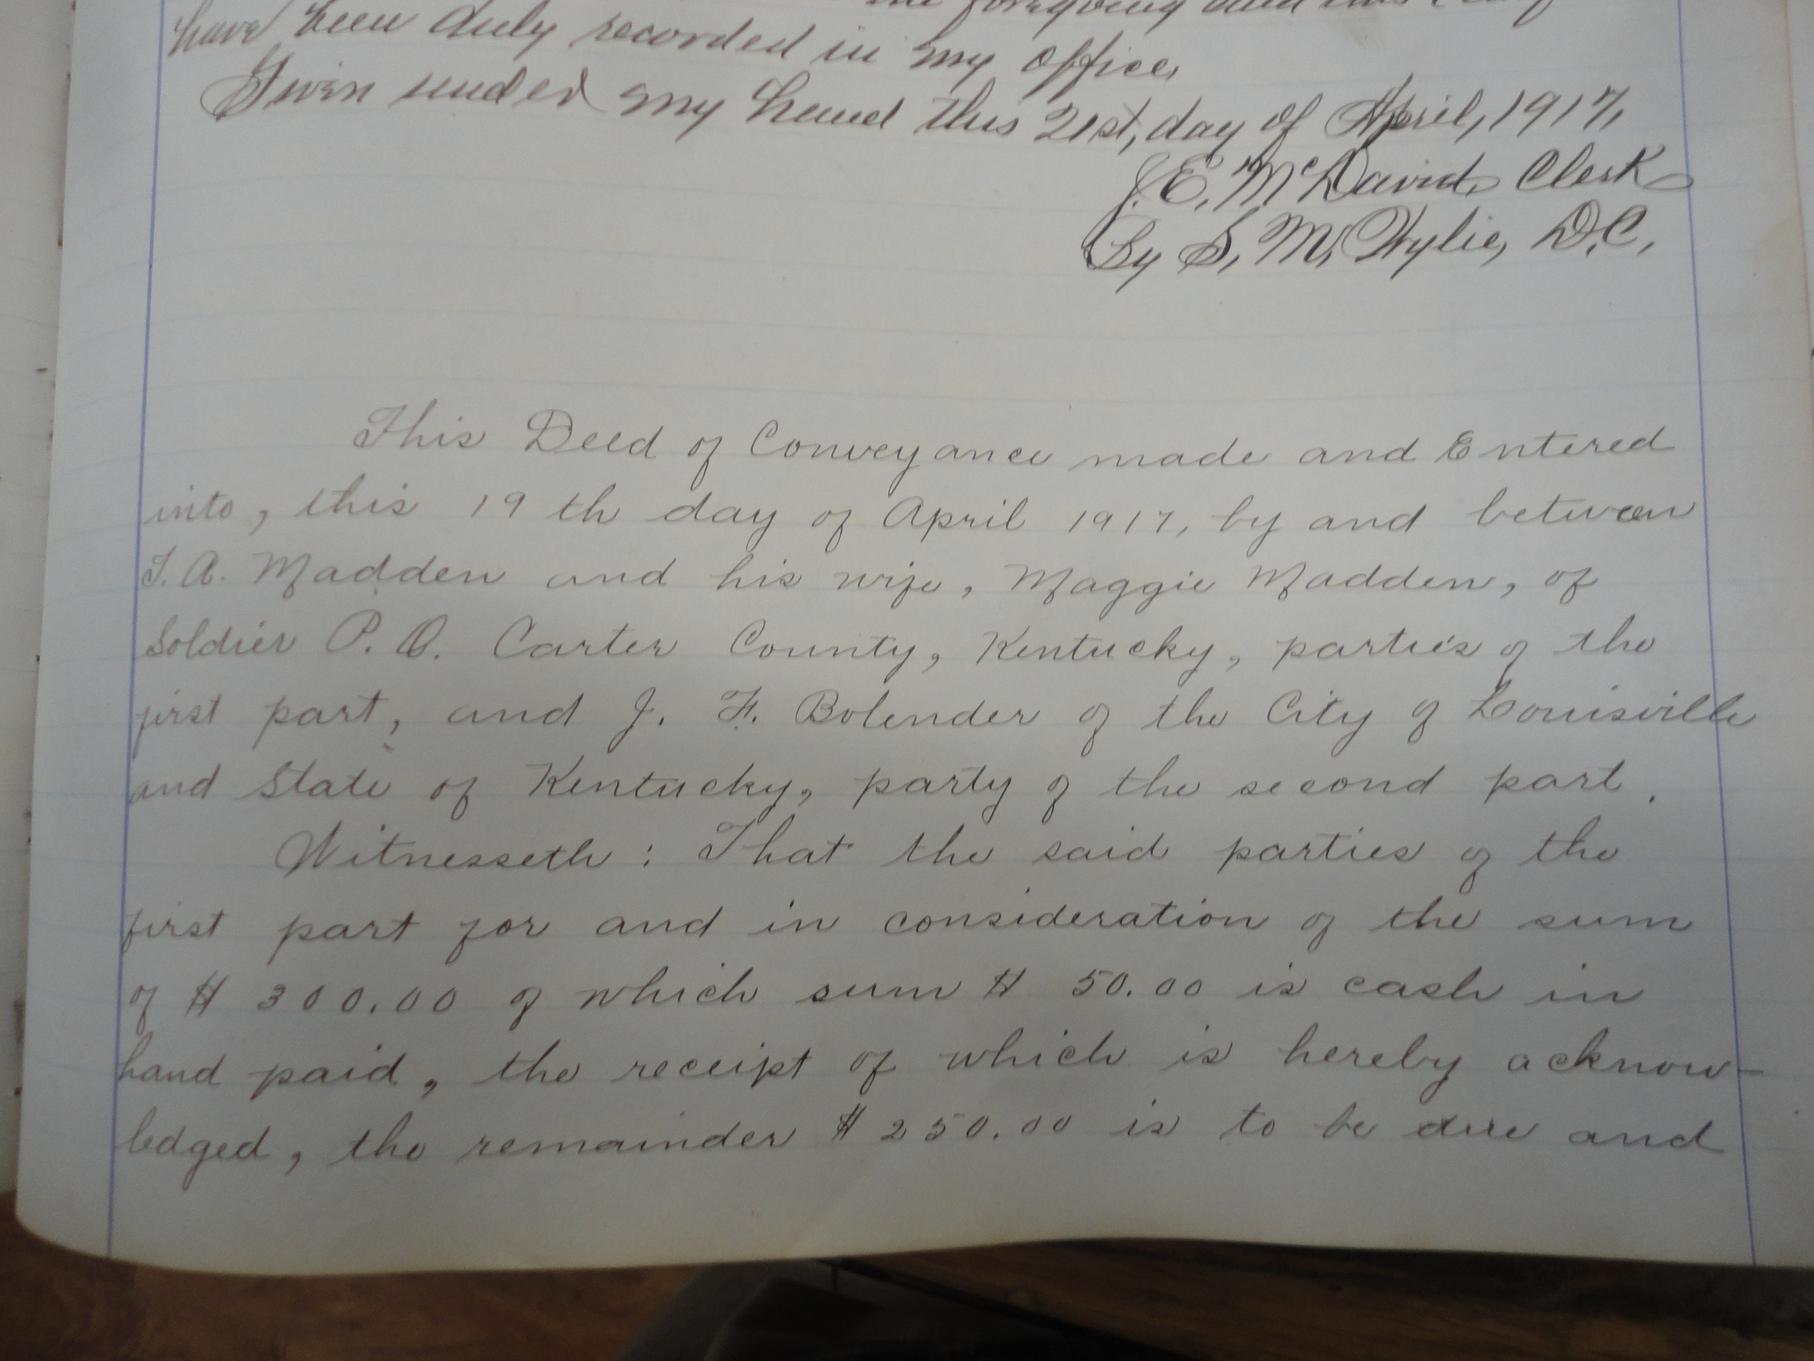 the foregoing deed this
have been duly recorded in my office,
Given under my hand this 21st, day of April, 1917,
J. E. McDavid, Clerk
By S, M, Wylie, D.C,
This Deed of Conveyance made and Entered
into, this 19th day of April 1917, by and between
T. A. Madden and his wife, Maggie Madden, of
Soldier P. O. Carter County, Kentucky, parties of the
first part, and J. F. Bolender of the City of Louisville
and State of Kentucky, party of the second part.
Witnesseth: That the said parties of the
first part for and in consideration of the sum
of $ 300.00 of which sum $ 50.00 is cash in
hand paid, the receipt of which is hereby acknow-
ledged, the remainder $ 250.00 is to be due and